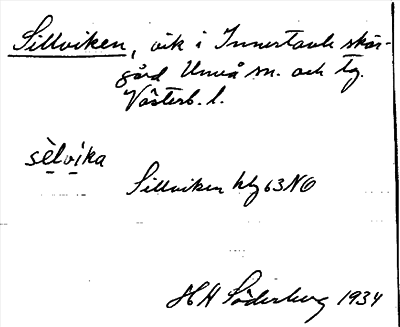 Sillviken, vik i Innertavle skär-
gård Umeå sn. och tg.
Västerb. l.
sèlvika
Sillviken kbg 63 NO
HH Söderberg 1934